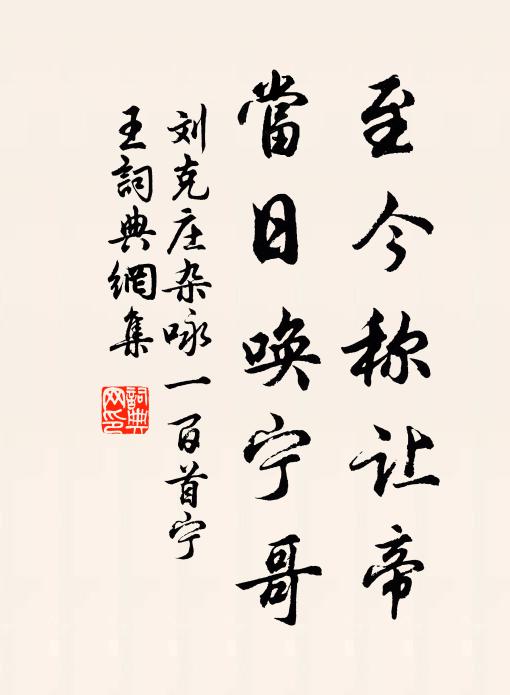 至今称让帝
當日唤宁哥
刘克庄杂咏一百首宁
王詞典網集
詞典
网印